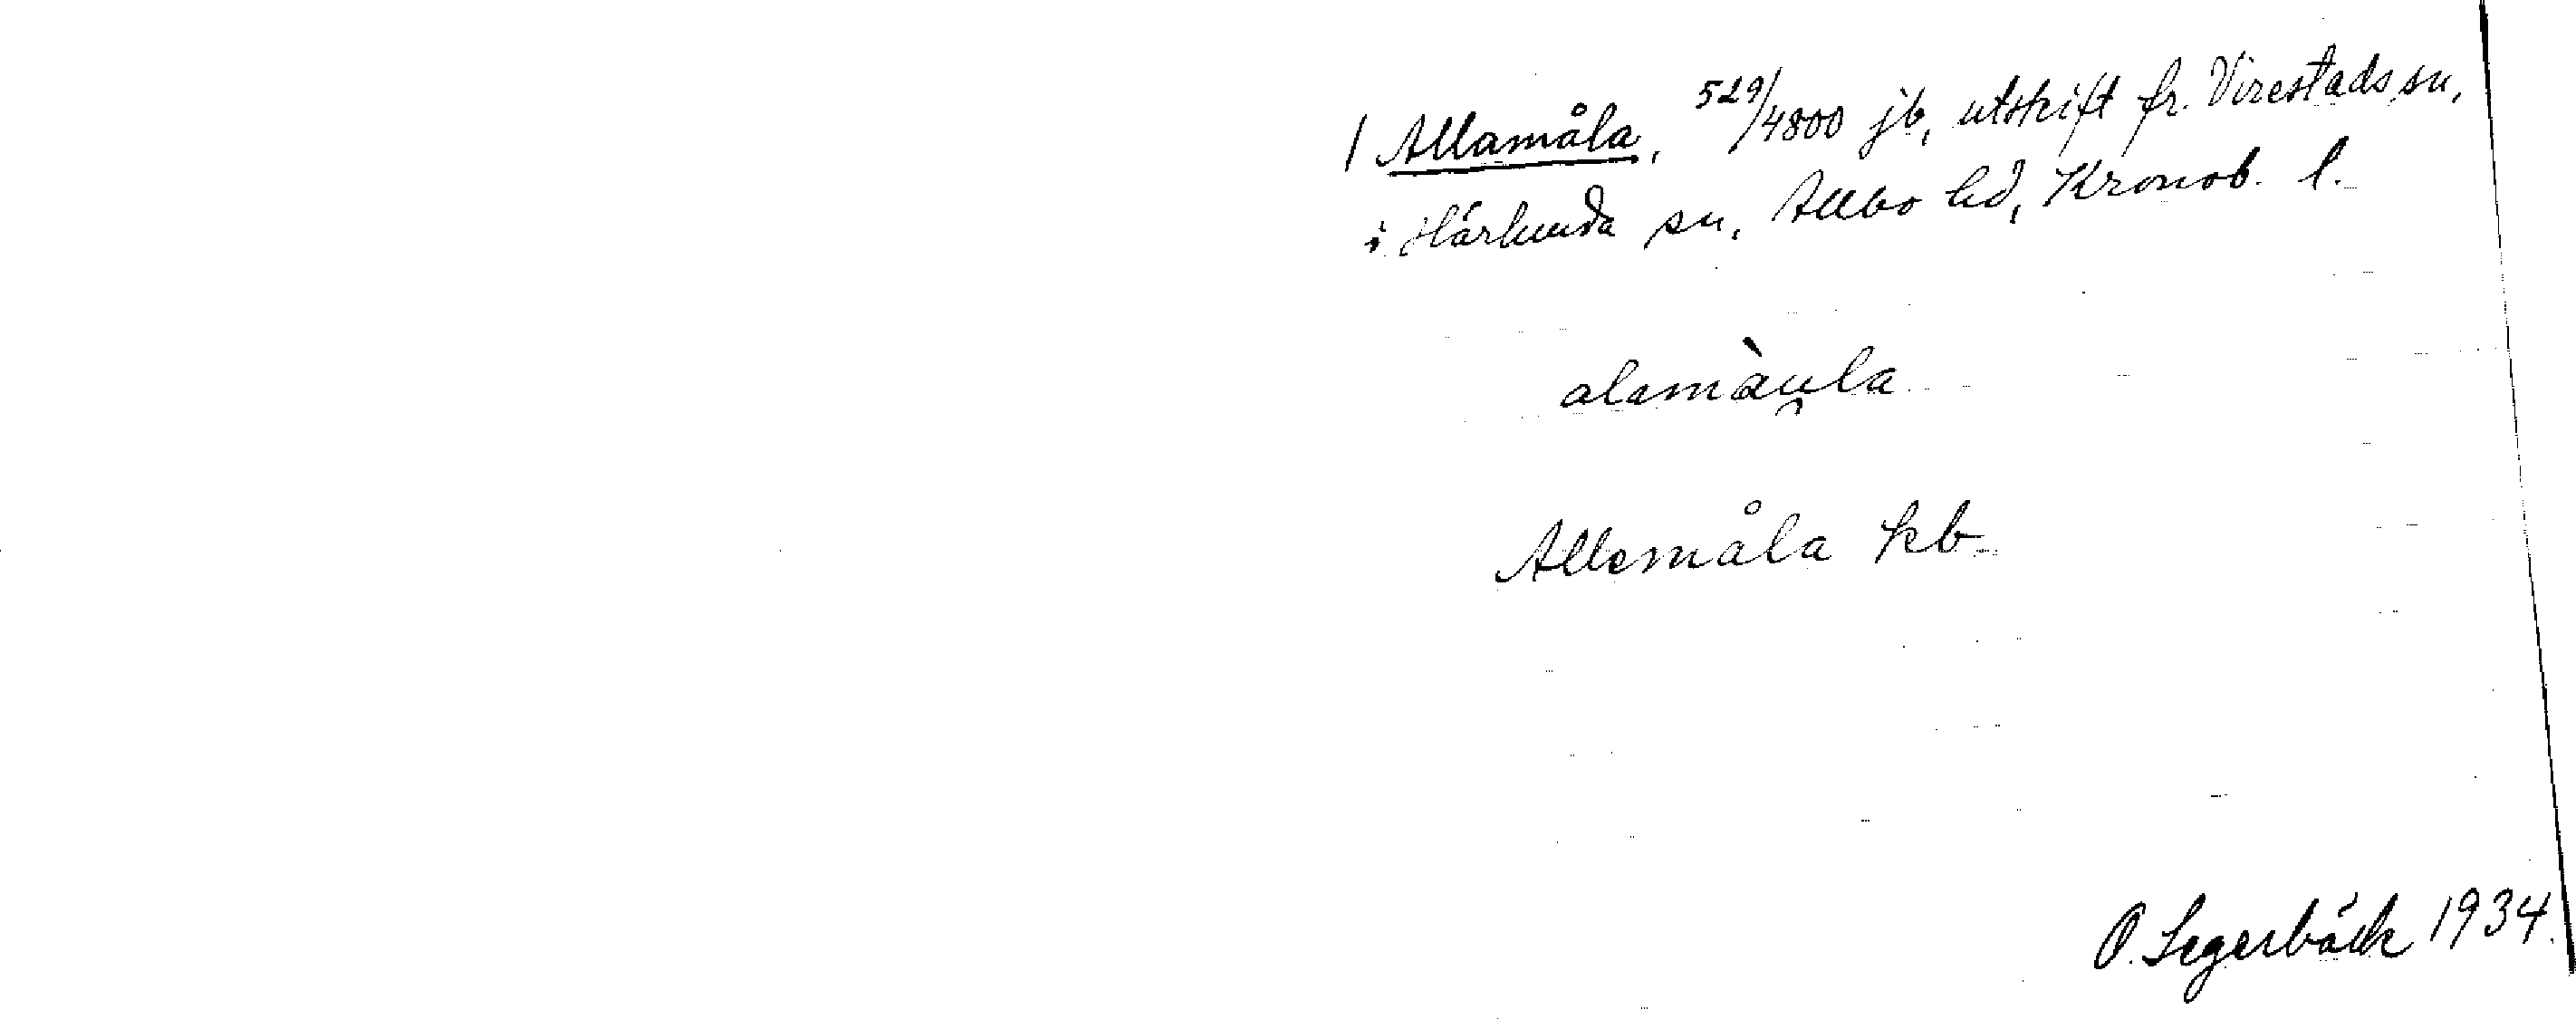 1 Allamåla, 529/4800 jb, utskift fr. Virestads sn,
i Härlunda sn, Allbo hd, Kronob. l.
alamàu̯la
Allemåla kb
O. Segerbäck 1934.